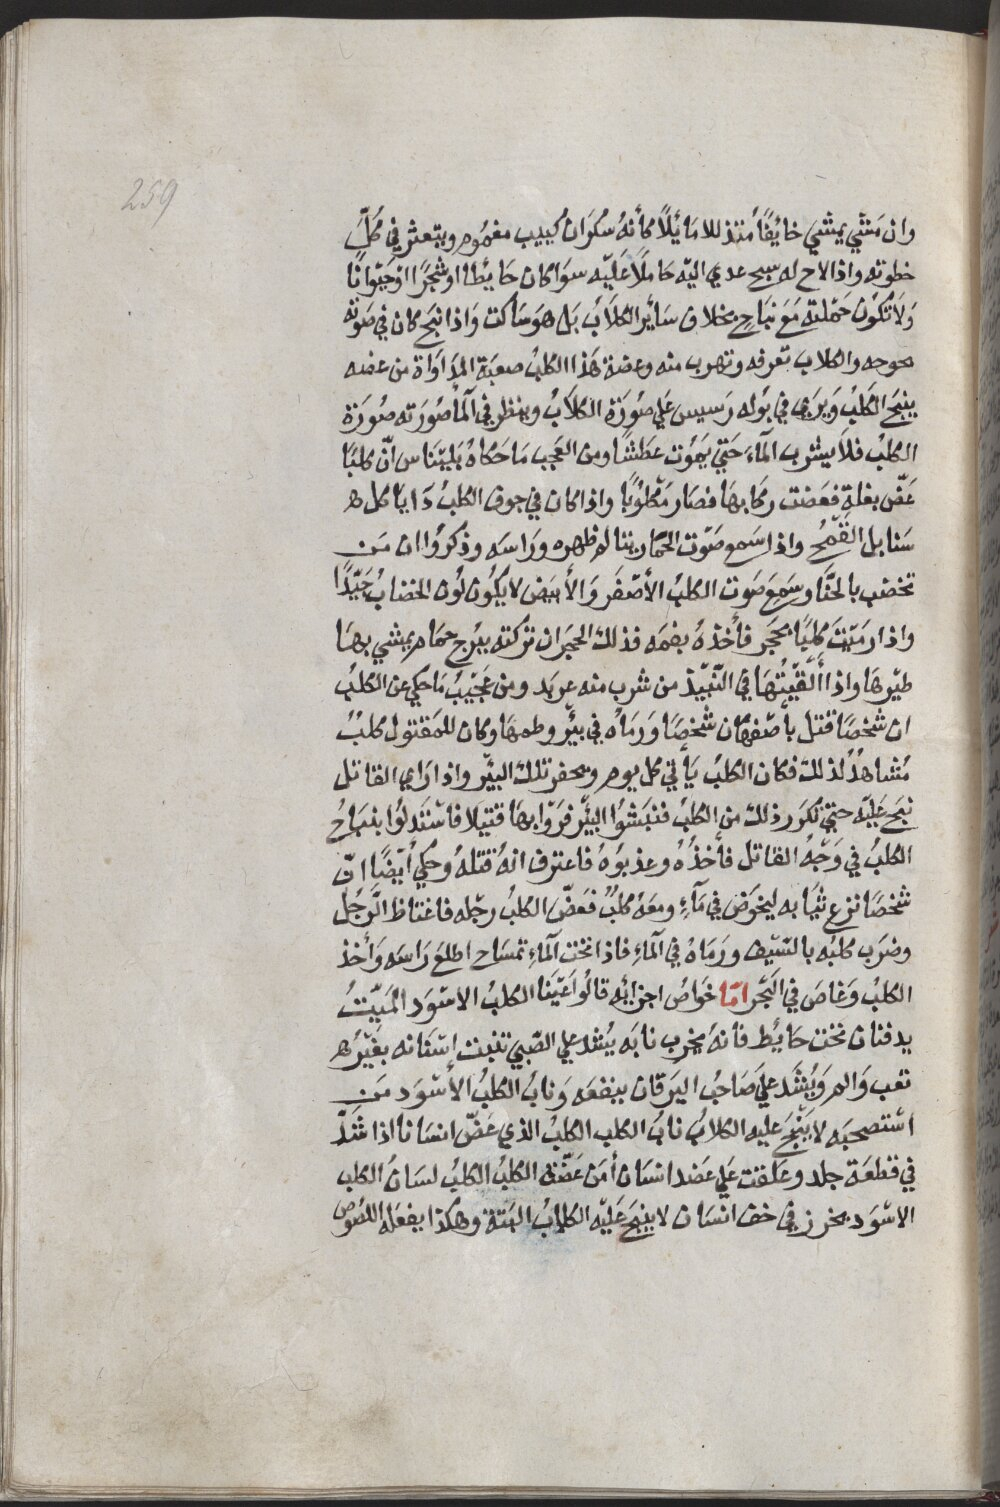 259
وان مَشَي يمشي خائِفًا مُتذللا مَائِلًا كأنهُ سُكرَان كييب مغمُوم ويتعثر في كُلِّ
خطوته واذا لاح له سبح عدي اليَه حَاملًا عَليَه سوَا كان حَايُطا اوشجَرًا اوحَيَوانًا
وَلاَ تكوُن حَمْلته مَعَ نبَاحٍ بخلاف سَائرِ الكلاَب بَل هوَ سَاكت وَاذا نبَح كان في صَوته
بحوحه والكلاب تعرفه وتهرب منه وعضة هَذا الكلبُ صعبَة المدَاوَاة من عضه
ينبَح الكَلبُ ويرَي في بَوله رَسيس عَلي صُورَة الكلاَبُ وينظر في اَلماُ صُورَته صُورَة
الكلبُ فلاَ يشرب اَلماَء حَتي يمَوُت عطشًا ومن العجب مَا حَكاهُ بَليناس انّ كلبًا
عَضّ بغلةِ فعَضت رَكابهَا فصَار مَكلوُبًا واذا كان في جوف الكلبُ دَا يَا كل
سَنابل القمْحُ واذا سَمع صَوت الحمَار يتَالم ظهره ورَاسَه وذكرُوا ان مَن
تخضب بالحنَّا وسَمعَ صَوت الكلبُ الأصْفَر وَالأبيَض لا يكوُن لَون الخضابُ جَيّدًا
واذا رمَيْتَ كلبًا بحجَرٍ فأخذهُ بفمَه فذلك الحجَر ان تركته ببُرج حمَام يمشي بهَا
طيْرهَا واذا أَلقيْتُهَا في النّبيْذ من شرب منه عربد ومن عَجيْبُ مَا حكي عَن الكلبُ
ان شخصًا قتل بأصْفهَان شخصَا ورَمَاُه في بئْرٍ وطمهَا وكان للمَقتول كلبُ
مُشاهدُ لذلك فكان الكلبُ يَأتي كل يوم ويحفر تلك البئْر واذا رَاي القاتل
نبَح عَليْه حتي تكرَر ذلك من الكلبُ فنبَشوُا البئْر فرَوْا بهَا قتيَلا فاسْتَدلوُا بنبَاحُ
الكلبُ في وَجْهُ القاتل فأخذُهُ وعذبوُهُ فاعترف انهُ قتلهُ وحكي أيْضًا انّ
شخصَا نزع ثيَابه ليخوَض في مَآءٍ ومعَهُ كلبُ فعَضّ الكلبُ رجْله فاغتاظ الرَّجُل
وضرَب كلبُه بالسّيَف ورَمَاهُ في اَلماءِ فاذا تحت اَلماءِ تمسَاح اطلعَ رَاسَه وَأخذ
الكلبُ وَغاصَ في البحْر امّا خَواصُ اجزائه قالوُا عَينَا الكلبُ الاسْوَد المَيّتُ
يدفنان تحت حَايُط فانهُ يخرب نابَه يُشد علي الصّبي تنبت اسْنَانه بغيْر
تعب وَالم وَيُشد علي صَاحبُ اليَرقان ينفعَه وَنابُ الكلبُ الأسْوَد مَن
اسْتصحبَه لا يَنْبَح عليه الكلابُ نابُ الكلب الكلبُ الذي عَضّ انسَانا اذا شَدّ
في قطعَة جلد وعَلقت عَلي عَضد انسَان أمَن عَضّة الكلبُ الكلبُ لسَانُ الكلب
الاسْوَد يخرز في خف انْسَان لا ينبَح عَليْه الكلابُ البَتةَ وهَكذا يفعَله اللصُوص